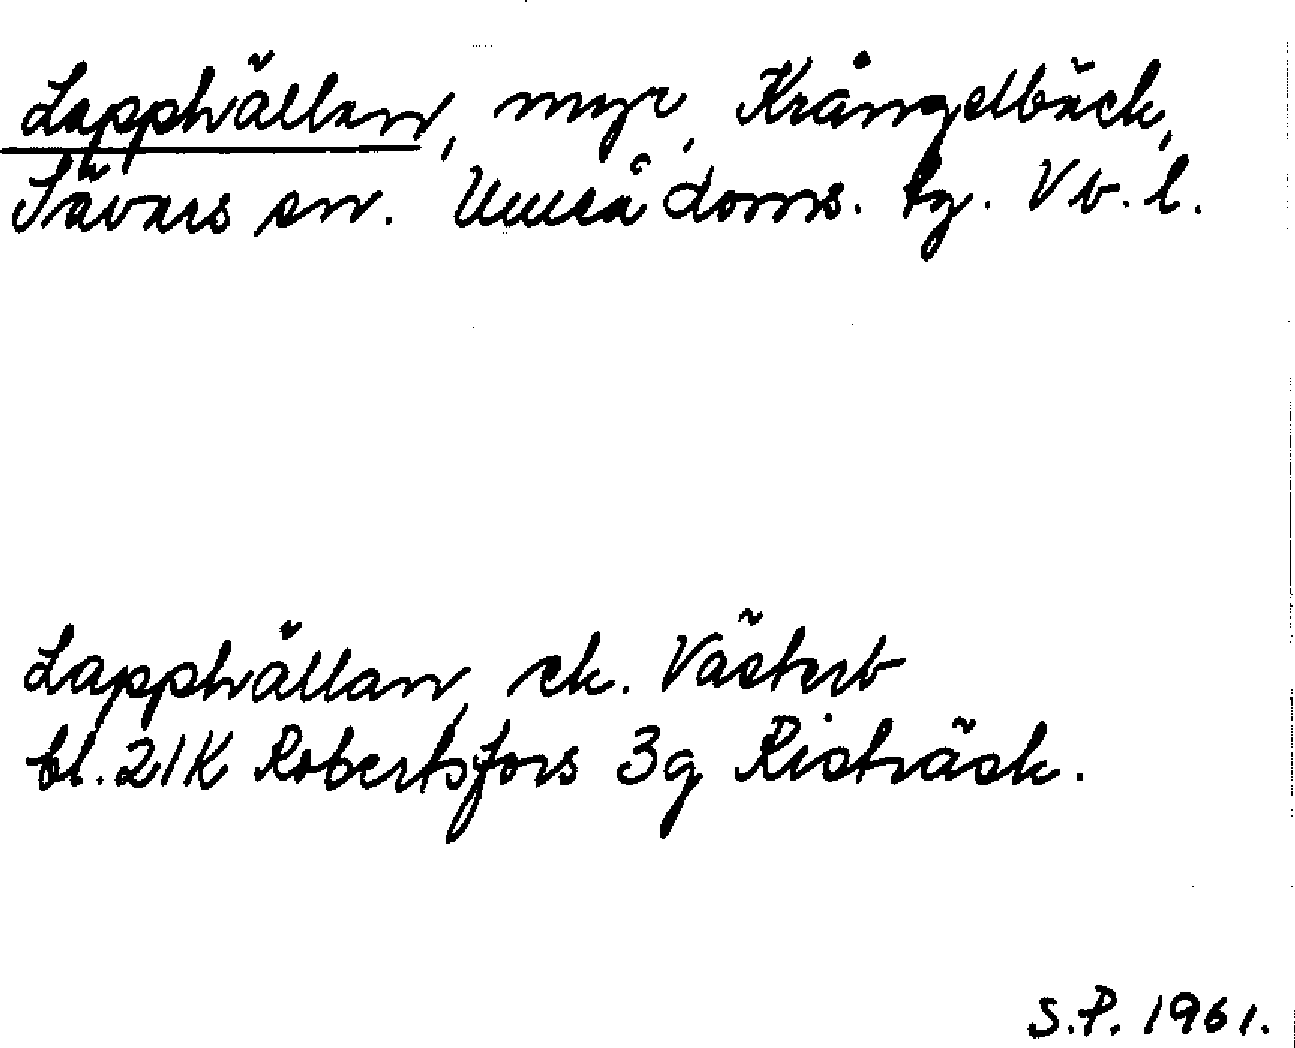 Lapphällan, myr, Krångelbäck,
Sävars sn. Umeå doms. tg. Vb. l.
Lapphällan, ek. Västerb
bl. 21K Robertsfors 3g Risträsk.
S.P. 1961.